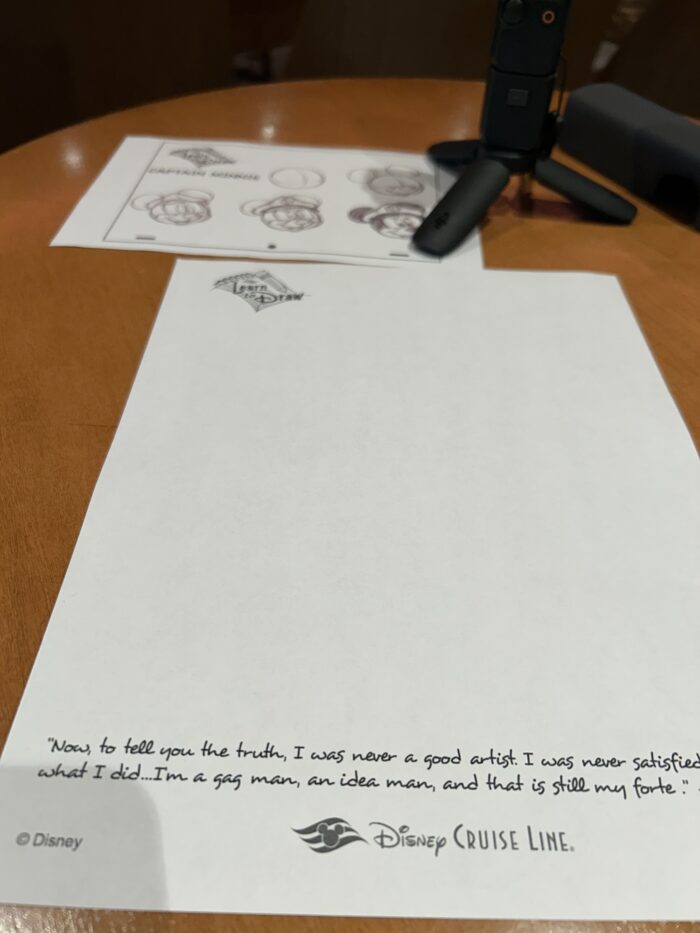 CAPTAIN MINNIE
Learn
to Draw
"Now, to tell you the truth, I was never a good artist. I was never satisfied
what I did...I'm a gag man, an idea man, and that is still my forte."
© Disney
Disney Cruise Line®